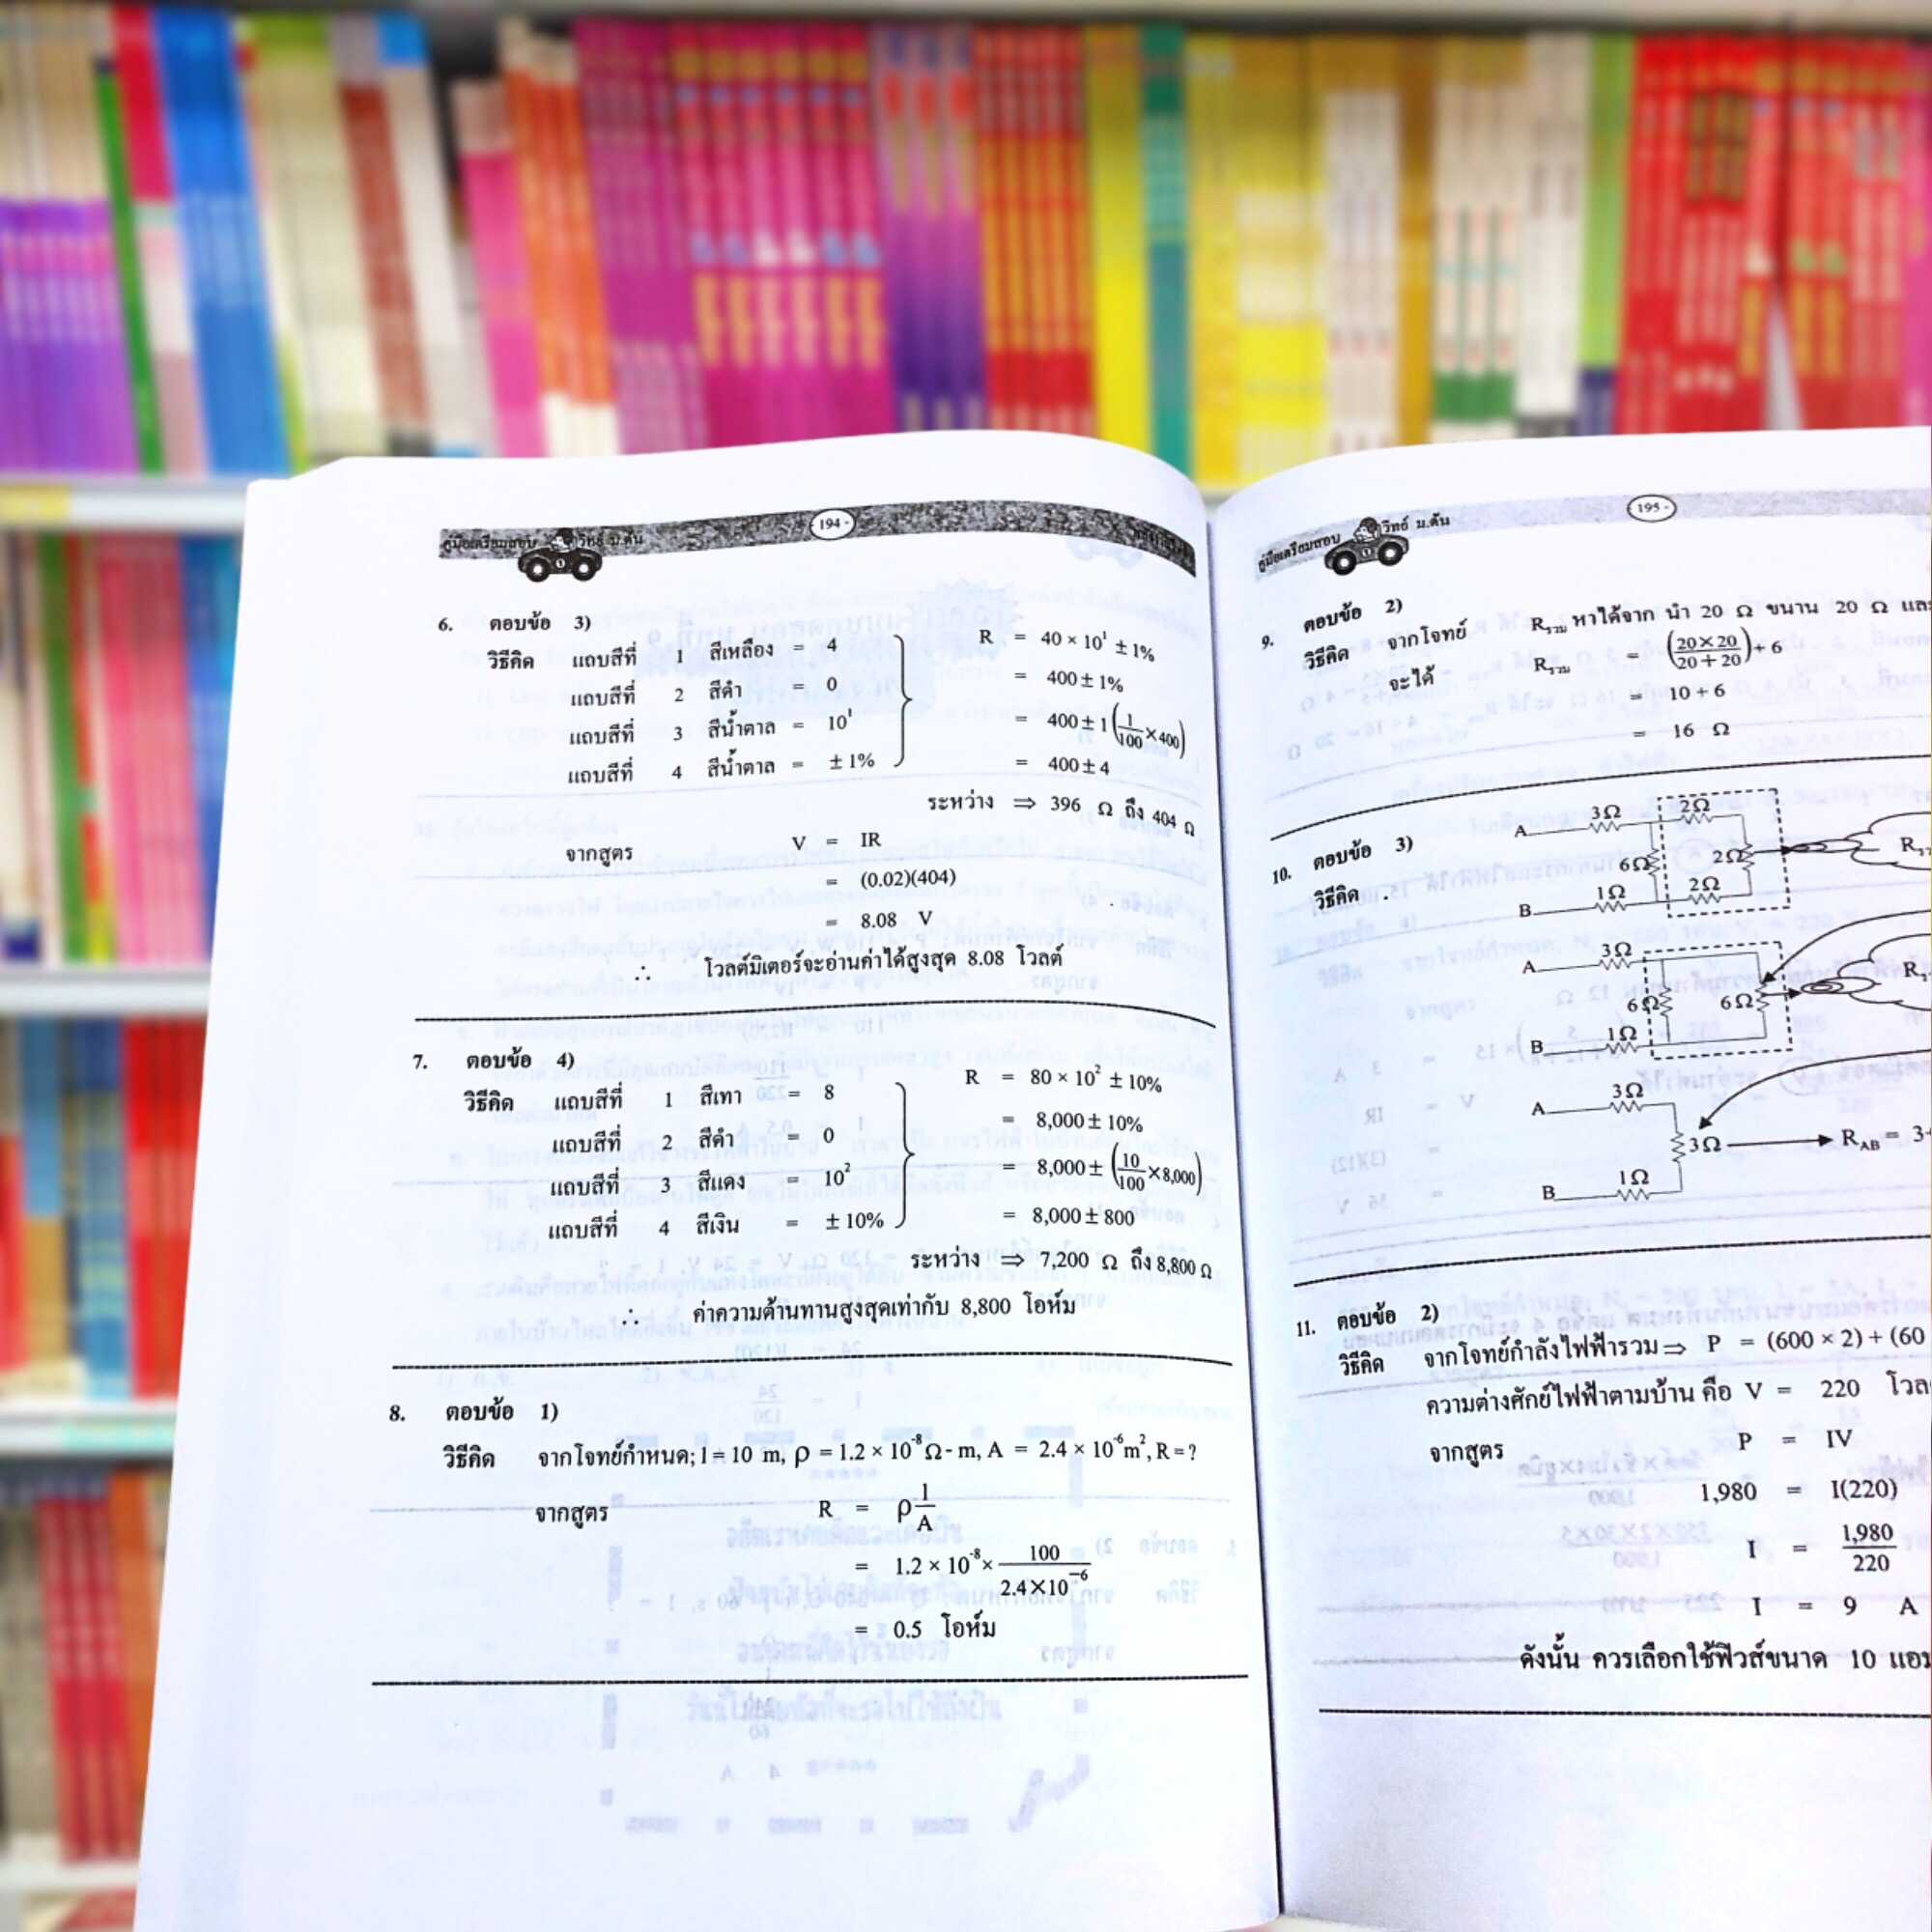 คู่มือเตรียมสอบ วิทย์ ม.ต้น
- 194 -
6. ตอบข้อ 3)
วิธีคิด แถบสีที่ 1 สีเหลือง = 4
แถบสีที่ 2 สีดำ = 0
แถบสีที่ 3 สีน้ำตาล = 10¹
แถบสีที่ 4 สีน้ำตาล = ± 1%
R = 40 × 10¹ ± 1%
= 400 ± 1%
= 400 ± 1 (1/100 × 400)
= 400 ± 4
ระหว่าง ⇒ 396 Ω ถึง 404 Ω
จากสูตร V = IR
= (0.02)(404)
= 8.08 V
∴ โวลต์มิเตอร์จะอ่านค่าได้สูงสุด 8.08 โวลต์
7. ตอบข้อ 4)
วิธีคิด แถบสีที่ 1 สีเทา = 8
แถบสีที่ 2 สีดำ = 0
แถบสีที่ 3 สีแดง = 10²
แถบสีที่ 4 สีเงิน = ± 10%
R = 80 × 10² ± 10%
= 8,000 ± 10%
= 8,000 ± (10/100 × 8,000)
= 8,000 ± 800
ระหว่าง ⇒ 7,200 Ω ถึง 8,800 Ω
∴ ค่าความต้านทานสูงสุดเท่ากับ 8,800 โอห์ม
8. ตอบข้อ 1)
วิธีคิด จากโจทย์กำหนด; l = 10 m, ρ = 1.2 × 10⁻⁸ Ω - m, A = 2.4 × 10⁻⁶ m², R = ?
จากสูตร R = ρ l/A
= 1.2 × 10⁻⁸ × 100/2.4×10⁻⁶
= 0.5 โอห์ม
คู่มือเตรียมสอบ วิทย์ ม.ต้น
- 195 -
9. ตอบข้อ 2)
วิธีคิด จากโจทย์ Rรวม หาได้จาก นำ 20 Ω ขนาน 20 Ω และ
จะได้ Rรวม = (20×20/20+20) + 6
= 10 + 6
= 16 Ω
10. ตอบข้อ 3)
วิธีคิด
A 3Ω 2Ω
6Ω 2Ω
B 1Ω 2Ω
A 3Ω
6Ω 6Ω
B 1Ω
A 3Ω
3Ω R_AB = 3
B 1Ω
11. ตอบข้อ 2)
วิธีคิด จากโจทย์กำลังไฟฟ้ารวม ⇒ P = (600 × 2) + (60
ความต่างศักย์ไฟฟ้าตามบ้าน คือ V = 220
จากสูตร P = IV
1,980 = I(220)
I = 1,980/220
I = 9 A
ดังนั้น ควรเลือกใช้ฟิวส์ขนาด 10